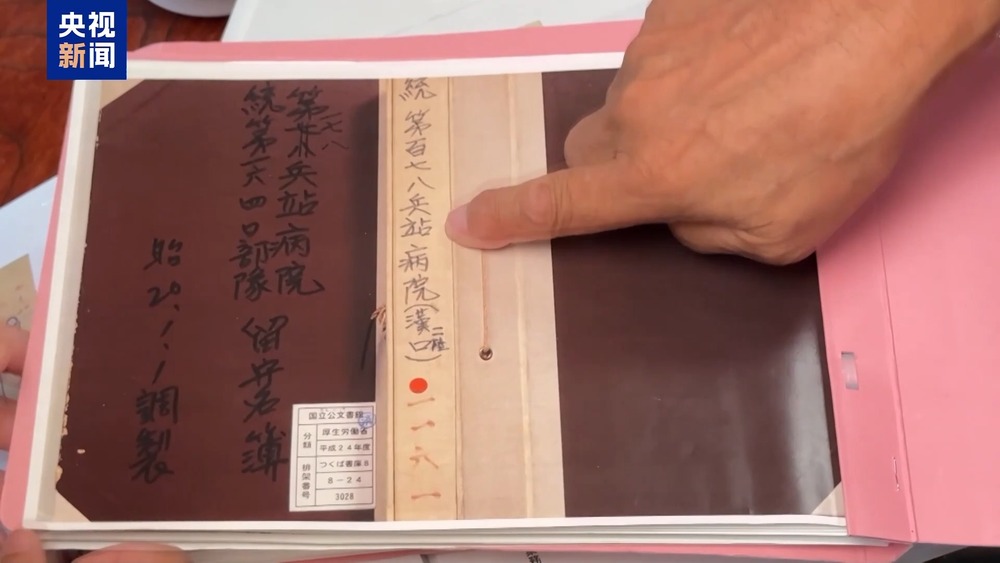 央视
新闻
統 第百七八兵站病院(漢口)
一一六一
第一七八兵站病院
統第一六四〇部隊 留守名簿
昭20.1.1調製
国立公文書館
分類
厚生労働省
平成24年度
つくば書庫8
排架番号
8-24
3028